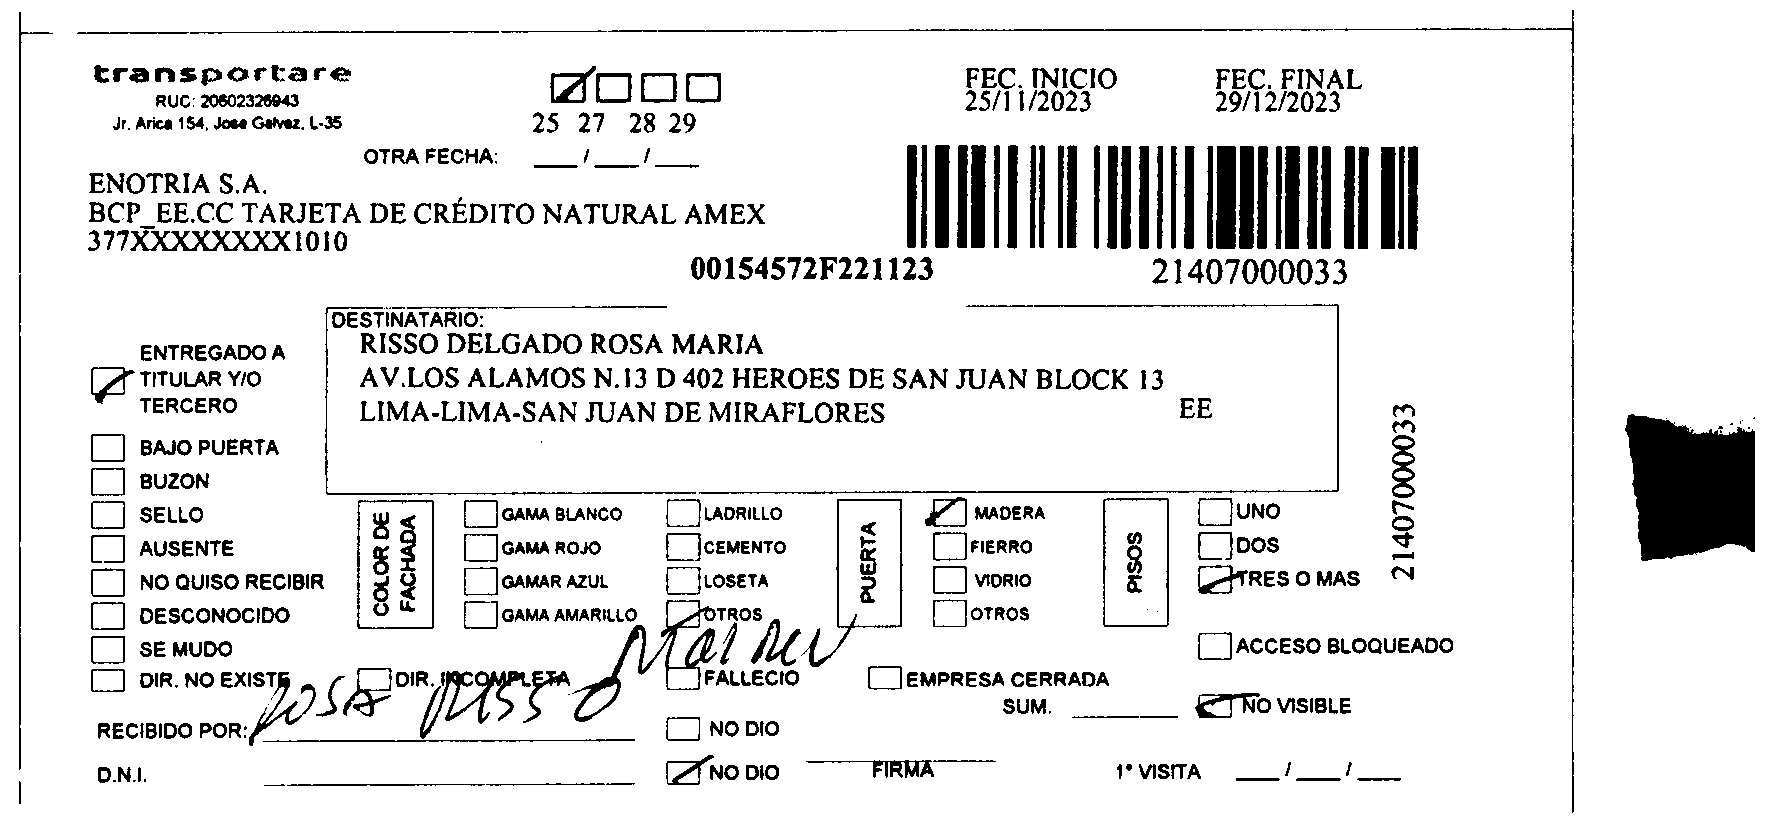 transportare
RUC: 20602326943
Jr. Arica 154, Jose Galvez, L-35
25 27 28 29
OTRA FECHA: ___/___/___
FEC. INICIO
25/11/2023
FEC. FINAL
29/12/2023
ENOTRIA S.A.
BCP_EE.CC TARJETA DE CRÉDITO NATURAL AMEX
377XXXXXXXX1010
00154572F221123
21407000033
DESTINATARIO:
RISSO DELGADO ROSA MARIA
AV.LOS ALAMOS N.13 D 402 HEROES DE SAN JUAN BLOCK 13
LIMA-LIMA-SAN JUAN DE MIRAFLORES EE
21407000033
ENTREGADO A
TITULAR Y/O
TERCERO
BAJO PUERTA
BUZON
SELLO
AUSENTE
NO QUISO RECIBIR
DESCONOCIDO
SE MUDO
DIR. NO EXISTE
COLOR DE
FACHADA
GAMA BLANCO
GAMA ROJO
GAMAR AZUL
GAMA AMARILLO
LADRILLO
CEMENTO
LOSETA
OTROS
PUERTA
MADERA
FIERRO
VIDRIO
OTROS
PISOS
UNO
DOS
TRES O MAS
ACCESO BLOQUEADO
DIR. INCOMPLETA
FALLECIO
EMPRESA CERRADA
SUM. ______
NO VISIBLE
RECIBIDO POR: ROSA RISSO
NO DIO
D.N.I.
NO DIO
FIRMA
1° VISITA ___/___/___